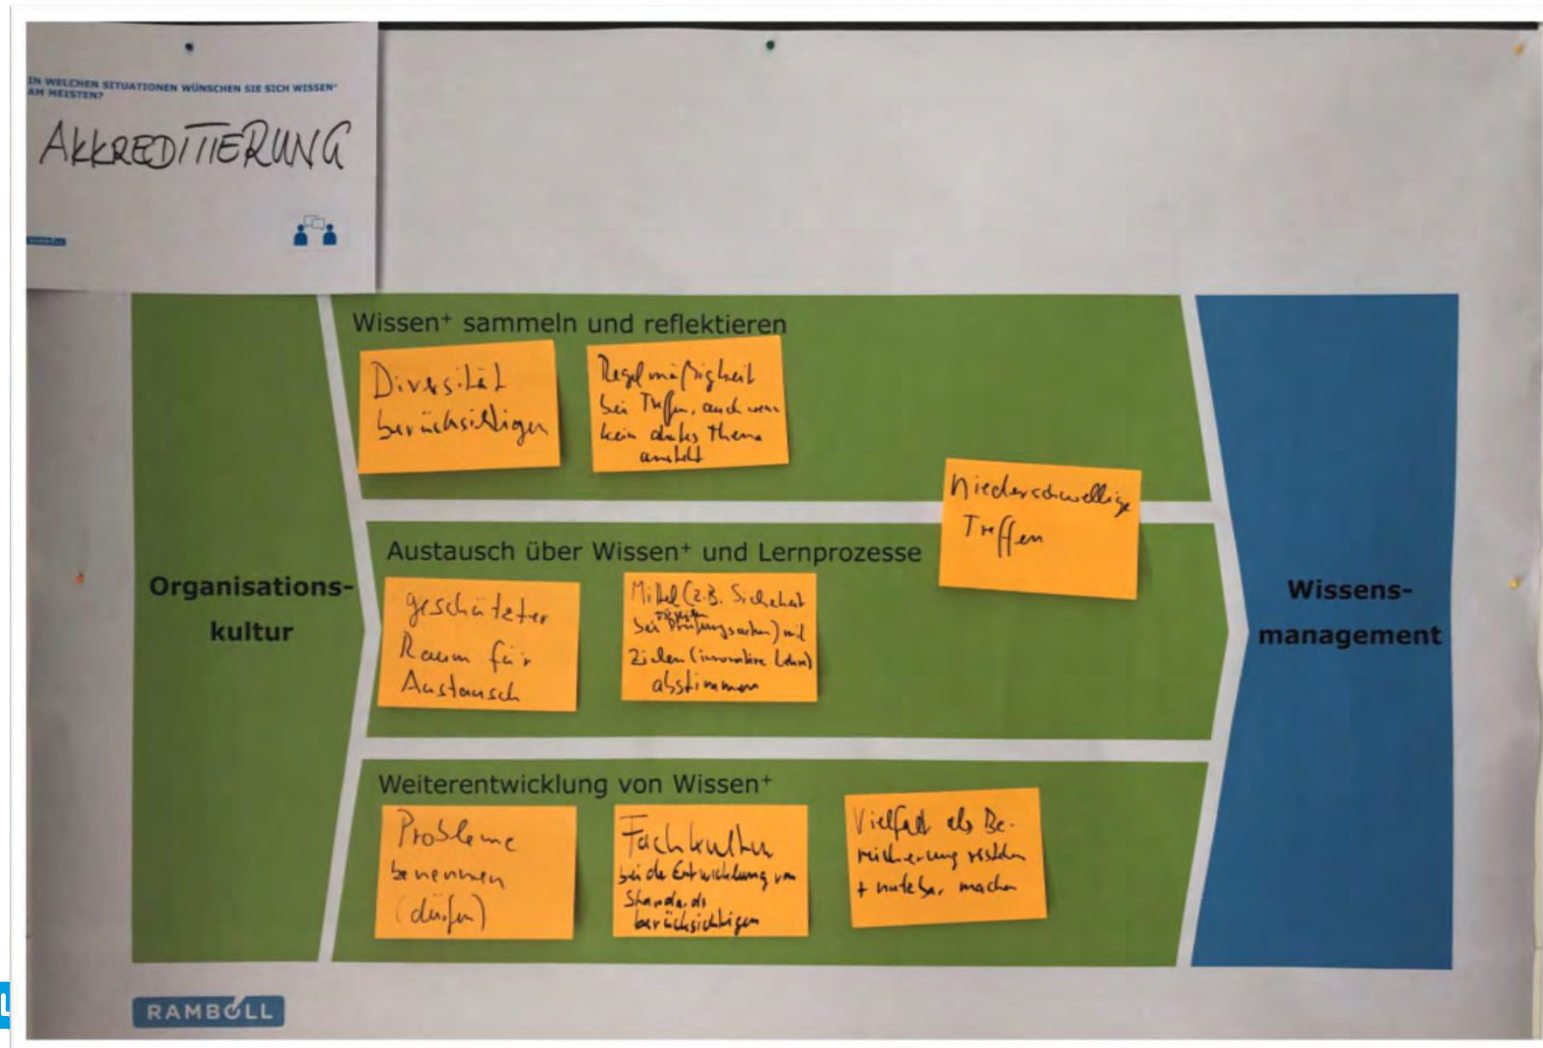 IN WELCHEN SITUATIONEN WÜNSCHEN SIE SICH WISSEN⁺
AM MEISTEN?
AKKREDITIERUNG
RAMBOLL
Wissen⁺ sammeln und reflektieren
Diversität
berücksichtigen
Regelmäßigkeit
bei Treffen, auch wenn
kein akutes Thema
ansteht
Niederschwellige
Treffen
Austausch über Wissen⁺ und Lernprozesse
geschützter
Raum für
Austausch
Mittel (z.B. Sicherheit
bei Prüfungsarten) mit
Zielen (innovative Lehre)
abstimmen
Organisations-
kultur
Wissens-
management
Weiterentwicklung von Wissen⁺
Probleme
benennen
(dürfen)
Fachkultur
bei der Entwicklung von
Standards
berücksichtigen
Vielfalt als Be-
reicherung
+ nutzbar machen
RAMBOLL